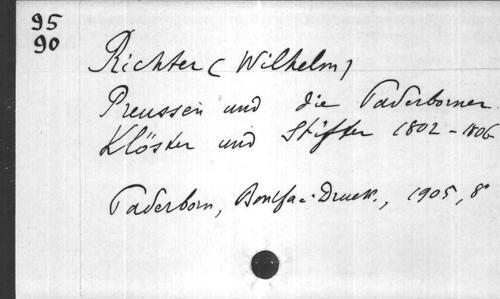 95
90
Richter (Wilhelm)
Preussen und die Paderborner
Klöster und Stifter 1802-1806
Paderborn, Bonifac. Druck., 1905, 8°